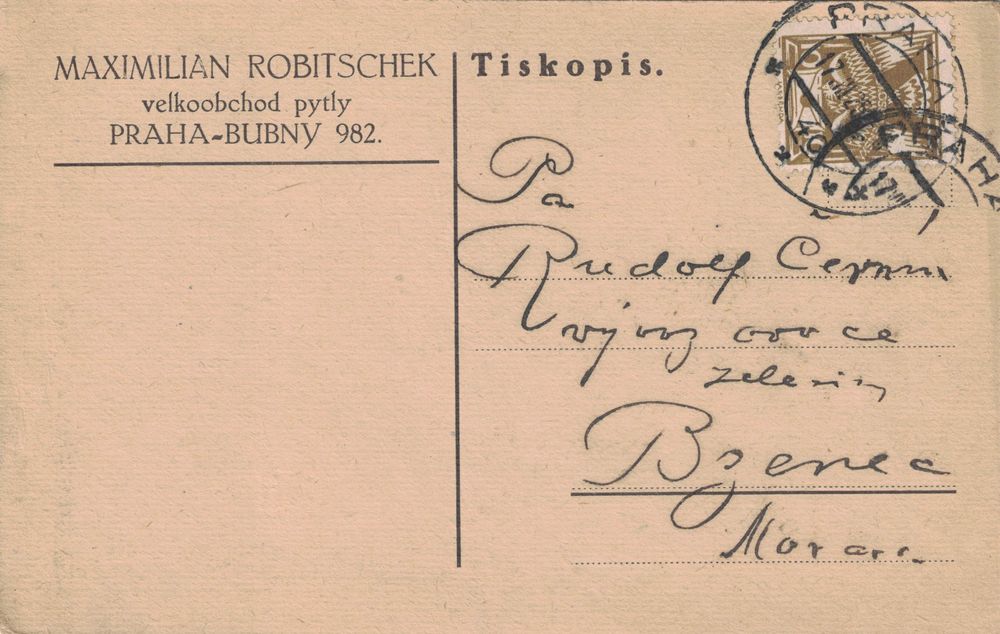 MAXIMILIAN ROBITSCHEK
velkoobchod pytly
PRAHA-BUBNY 982.
Tiskopis.
PRAHA
PRAHA
17
Pa
Rudolf Černý
vývoz ovoce
zeleniny
Bzenec
Morava